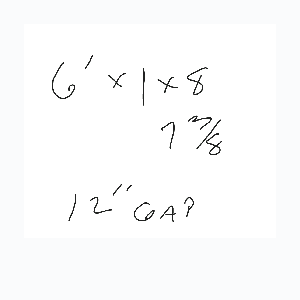 6' x 1 x 8
7 3/8
12" GAP